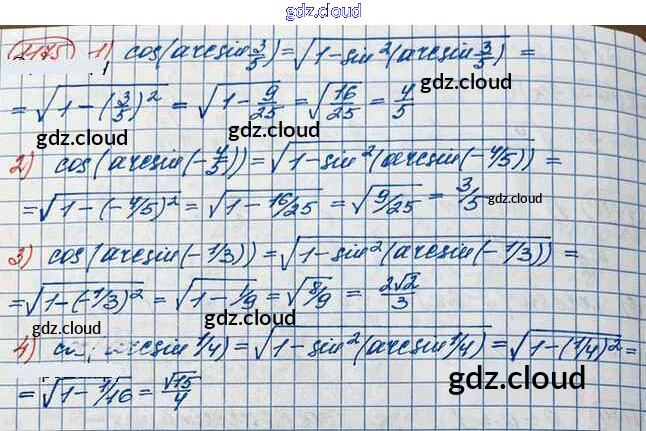 gdz.cloud
1175 1) cos(arcsin 3/5) = √(1-sin²(arcsin 3/5)) =
= √(1-(3/5)²) = √(1-9/25) = √(16/25) = 4/5
gdz.cloud gdz.cloud
2) cos(arcsin(-4/5)) = √(1-sin²(arcsin(-4/5))) =
= √(1-(-4/5)²) = √(1-16/25) = √(9/25) = 3/5 gdz.cloud
3) cos(arcsin(-1/3)) = √(1-sin²(arcsin(-1/3))) =
= √(1-(-1/3)²) = √(1-1/9) = √(8/9) = 2√2/3
gdz.cloud gdz.cloud
4) (arcsin 1/4) = √(1-sin²(arcsin 1/4)) = √(1-(1/4)²) =
= √(1-1/16) = √15/4 gdz.cloud